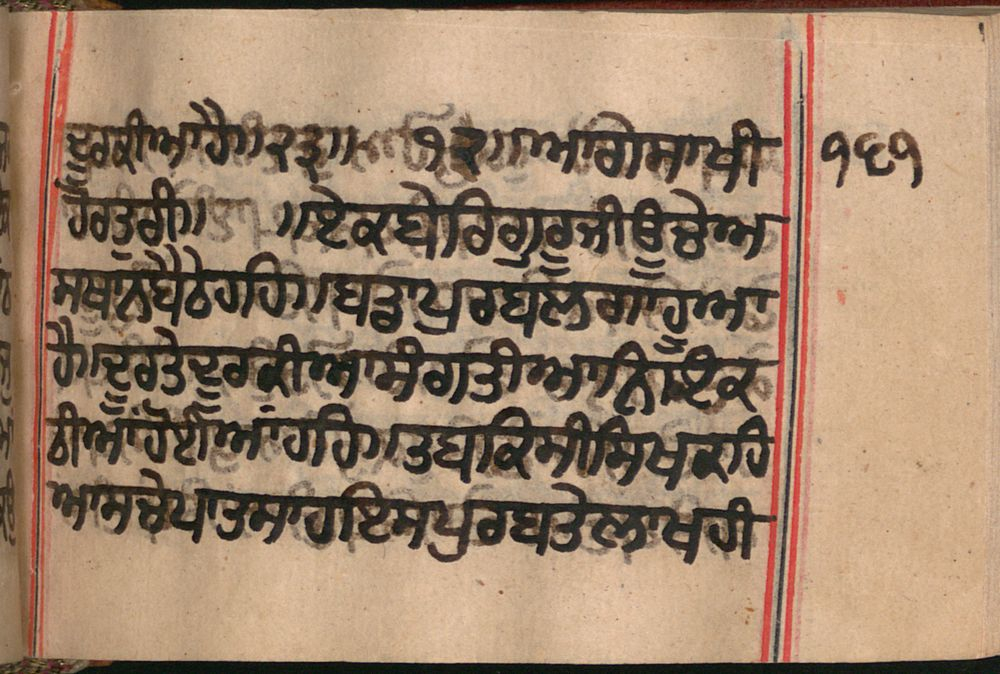 ਦੂਰਕੀਆਹੈ॥੨੩॥ ੧੨॥ਆਗੇਸਾਖੀ
ਹੋਰਤੁਰੀ॥ ॥ਏਕਬੇਰਿਗੁਰੂਜੀਊਚੇਅ
ਸਥਾਨਬੈਠੇਹਹਿ॥ਬਡਾਪੁਰਬਲਗਾਹੂਆ
ਹੈ॥ਦੂਰਤੇਦੂਰਕੀਆਸੰਗਤੀਆਨਿਇਕ
ਠੀਆਂਹੋਈਆਂਹਹਿ॥ਤਬਕਿਸੀਸਿਖਕਹਿ
ਆਸਚੇਪਾਤਸਾਹਇਸਪੁਰਬਤੇਲਾਖਹੀ
੧੬੧